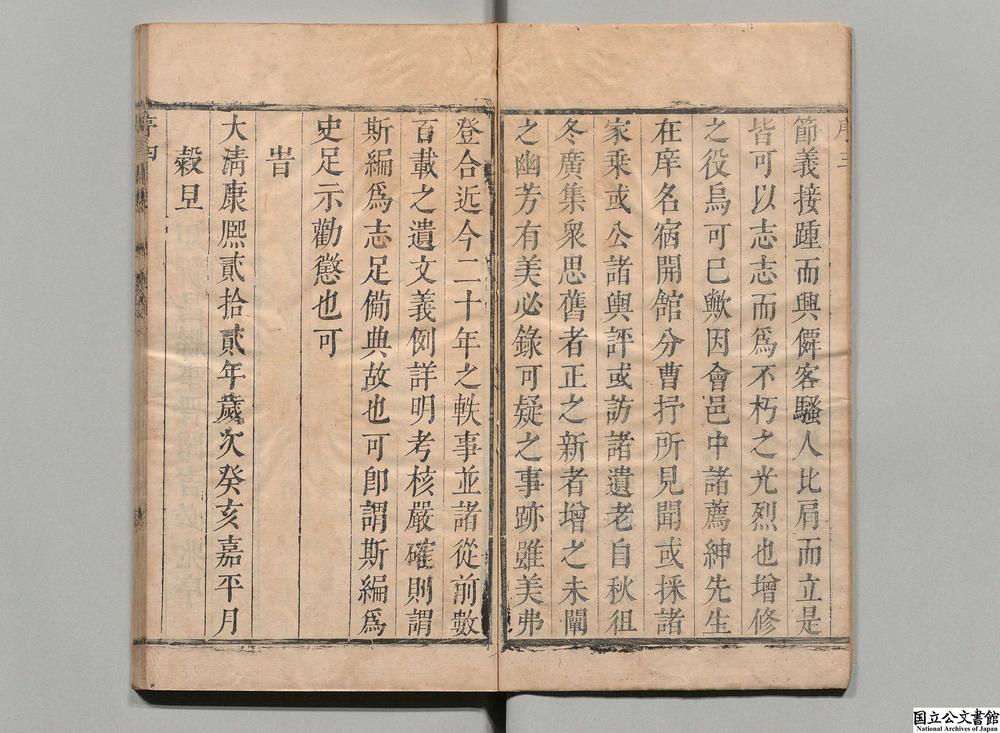 序三
節義接踵而興僊客騷人比肩而立是
皆可以志志而爲不朽之光烈也增修
之役烏可已歟因會邑中諸薦紳先生
在庠名宿開館分曹抒所見聞或採諸
家乘或公諸輿評或訪諸遺老自秋徂
冬廣集衆思舊者正之新者增之未闡
之幽芳有美必錄可疑之事跡雖美弗
登合近今二十年之軼事並諸從前數
百載之遺文義例詳明考核嚴確則謂
斯編爲志足僃典故也可卽謂斯編爲
史足示勸懲也可
旹
大淸康熈貳拾貳年歲次癸亥嘉平月
穀旦
序四
国立公文書館
National Archives of Japan